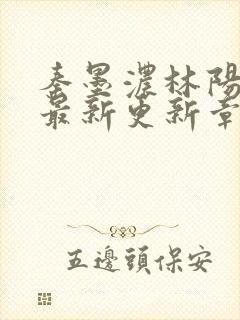 秦墨濃林陽
最新更新章
五邊頭保安